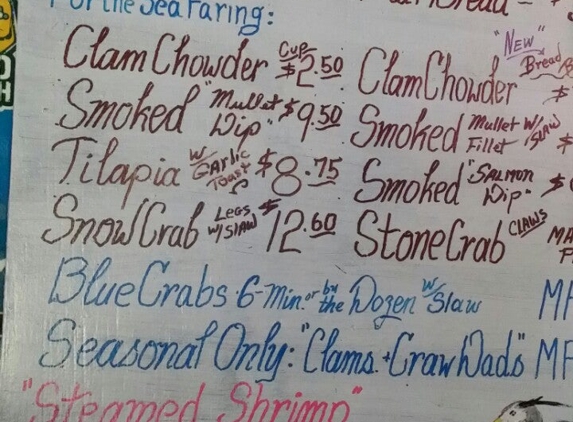 For the Sea Faring:
Clam Chowder Cup $2.50
Smoked "Mullet Dip" $9.50
Tilapia w/ Garlic Toast $8.75
Snow Crab Legs w/ Slaw $12.60
"New"
Clam Chowder Bread
Smoked Mullet w/ Slaw Fillet $
Smoked "Salmon Dip" $
Stone Crab Claws
Blue Crabs 6-Min. or by the Dozen w/ Slaw
Seasonal Only: "Clams + Craw Dads"
"Steamed Shrimp"